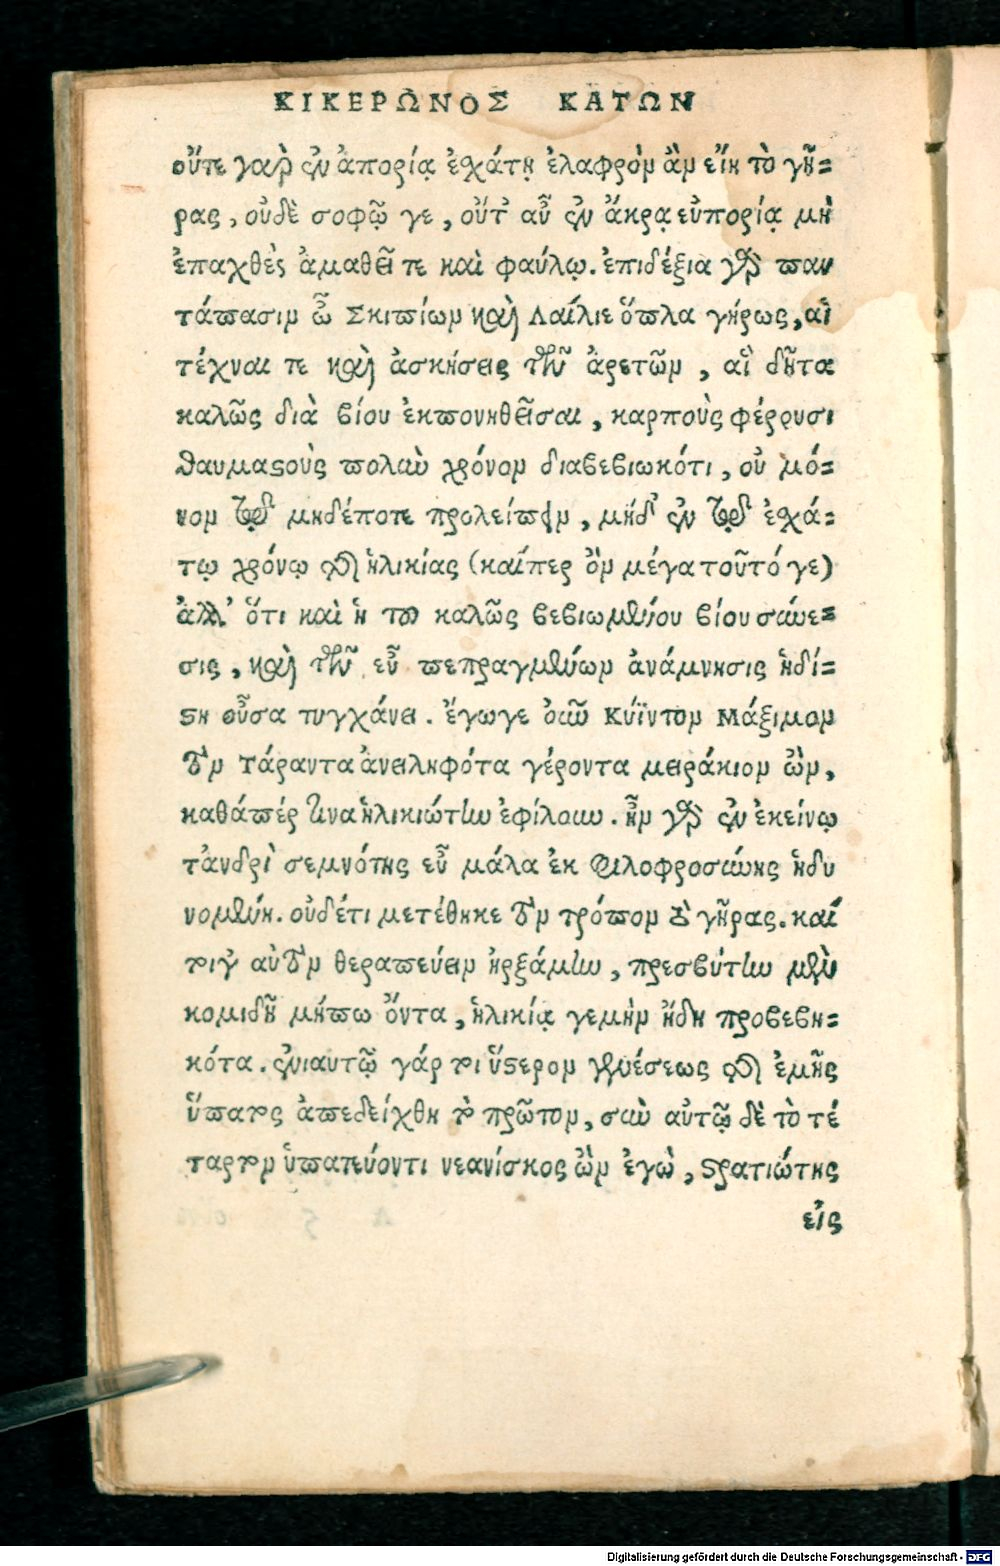 ΚΙΚΕΡΩΝΟΣ ΚΑΤΩΝ
οὔτε γαὰρ ἐν ἀπορίᾳ ἐσχάτῃ ἐλαφρὸν ἂν εἴη τὸ γῆ=
ρας, οὐδὲ σοφῷ γε, οὔτ' αὖ ἐν ἄκρᾳ εὐπορίᾳ μὴ
ἐπαχθὲς ἀμαθεῖ τε καὶ φαύλῳ. ἐπιδέξια γὰρ παν
τάπασιν ὦ Σκιπίων καὶ Λαίλιε ὅπλα γήρως, αἱ
τέχναι τε καὶ ἀσκήσεις τῶν ἀρετῶν, αἳ δῆτα
καλῶς διὰ βίου ἐκπονηθεῖσαι, καρποὺς φέρουσι
θαυμαστοὺς πολὺν χρόνον διαβεβιωκότι, οὐ μό=
νον τῷ μηδέποτε προλείπειν, μήδ' ἐν τῷ ἐσχά=
τῳ χρόνῳ τῆς ἡλικίας (καίπερ ὂν μέγα τοῦτό γε)
ἀλλ' ὅτι καὶ ἡ τοῦ καλῶς βεβιωμένου βίου σύνε=
σις, καὶ τῶν εὖ πεπραγμένων ἀνάμνησις ἡδί=
στη οὖσα τυγχάνει. ἔγωγε οὖν Κύϊντον Μάξιμον
τὸν Τάραντα ἀνειληφότα γέροντα μειράκιον ὢν,
καθάπέρ τινα ἡλικιώτην ἐφίλουν. ἦν γὰρ ἐν ἐκείνῳ
τἀνδρὶ σεμνότης εὖ μάλα ἐκ φιλοφροσύνης ἡδυ
νομένη. οὐδέτι μετέθηκε τὸν τρόπον τὸ γῆρας. καί
τοιγ' αὐτὸν θεραπεύειν ἠρξάμην, πρεσβύτην μὲν
κομιδῆ μήπω ὄντα, ἡλικίᾳ γεμὴν ἤδη προβεβη=
κότα. ἐνιαυτῷ γάρ τοι ὕστερον γενέσεως τῆς ἐμῆς
ὕπατος ἀπεδείχθη τὸ πρῶτον, σὺν αὐτῷ δὲ τὸ τέ
ταρτον ὑπατεύοντι νεανίσκος ὢν ἐγὼ, στρατιώτης
εἰς
Digitalisierung gefördert durch die Deutsche Forschungsgemeinschaft - DFG